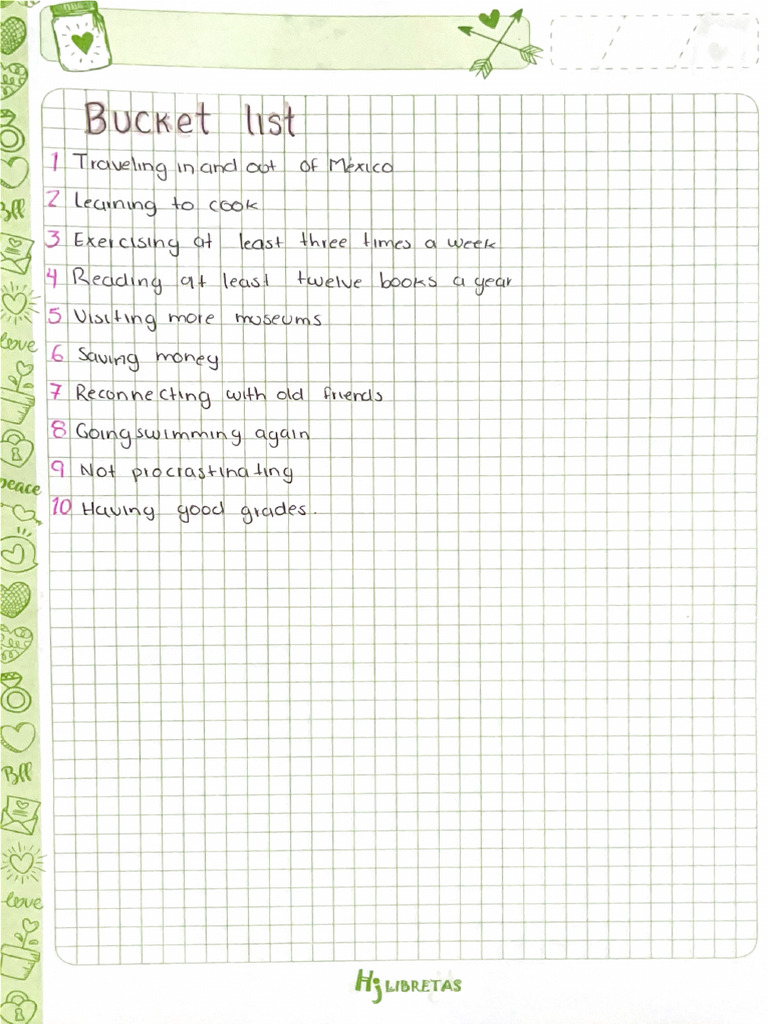 Bucket list
1 Traveling in and out of México
2 Learning to cook
3 Exercising at least three times a week
4 Reading at least twelve books a year
5 Visiting more museums
6 Saving money
7 Reconnecting with old friends
8 Going swimming again
9 Not procrastinating
10 Having good grades.
Bff
love
peace
Bff
love
Hj LIBRETAS